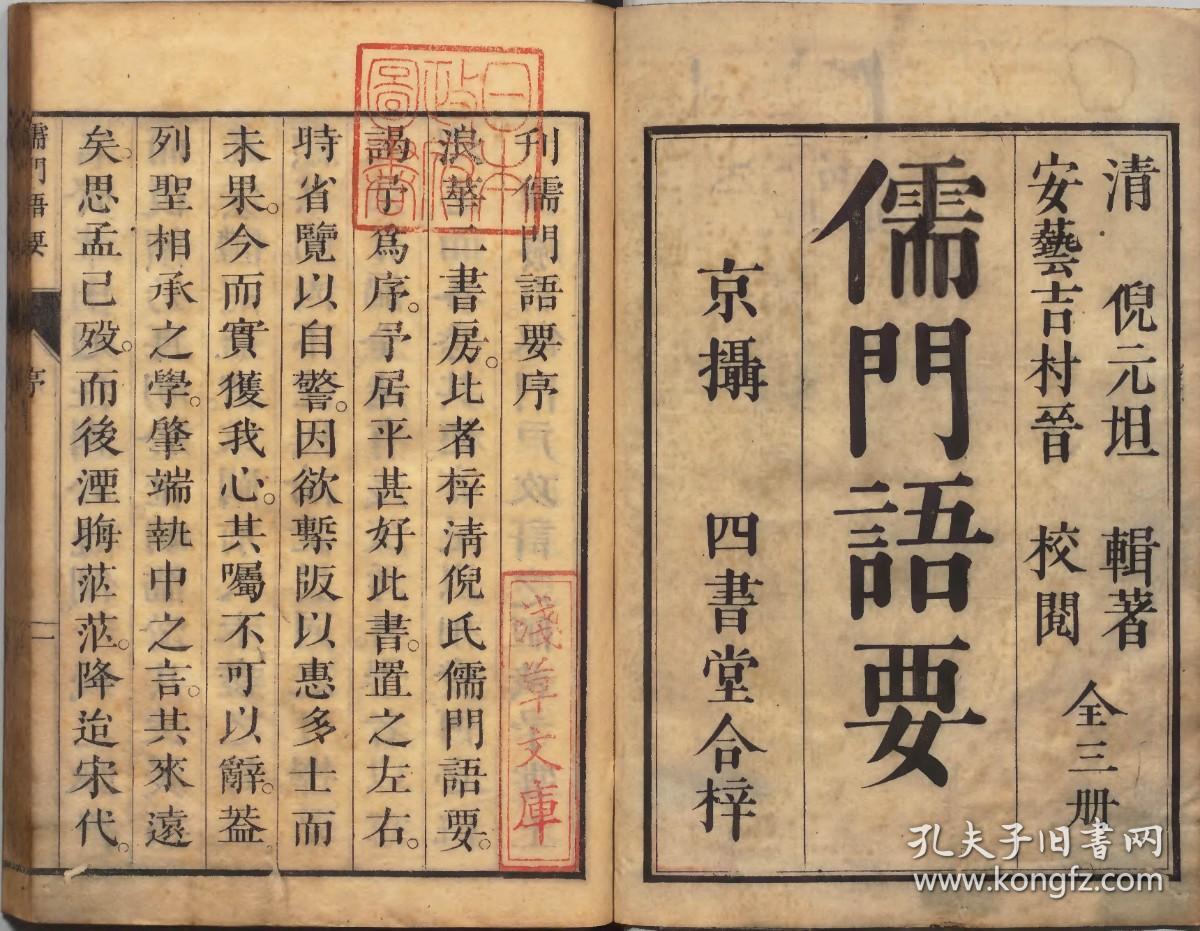 清 倪元坦 輯著
安藝吉村晉 校閱 全三册
儒門語要
京攝 四書堂合梓
日本
政府
圖書
刋儒門語要序
浪華二書房。比者梓清倪氏儒門語要。
謁予爲序。予居平甚好此書。置之左右。
時省覽以自警。因欲槧版以惠多士而
未果。今而實獲我心。其囑不可以辭。葢
列聖相承之學。肇端執中之言。其來遠
矣。思孟已歿。而後湮晦茫茫。降迨宋代。
淺草文庫
儒門語要 序 一
孔夫子旧书网
www.kongfz.com